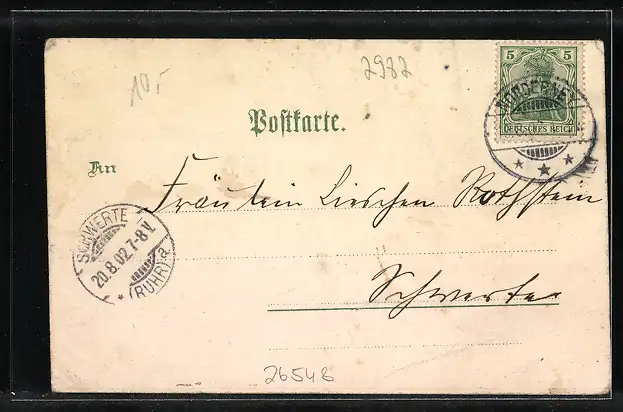 10,-
2982
5 5
DEUTSCHES REICH
NORDERNEY
Postkarte.
An
Fräulein Lieschen Rothstein
SCHWERTE
20.8.02.7-8V.
(RUHR) a
Schwerte
26548